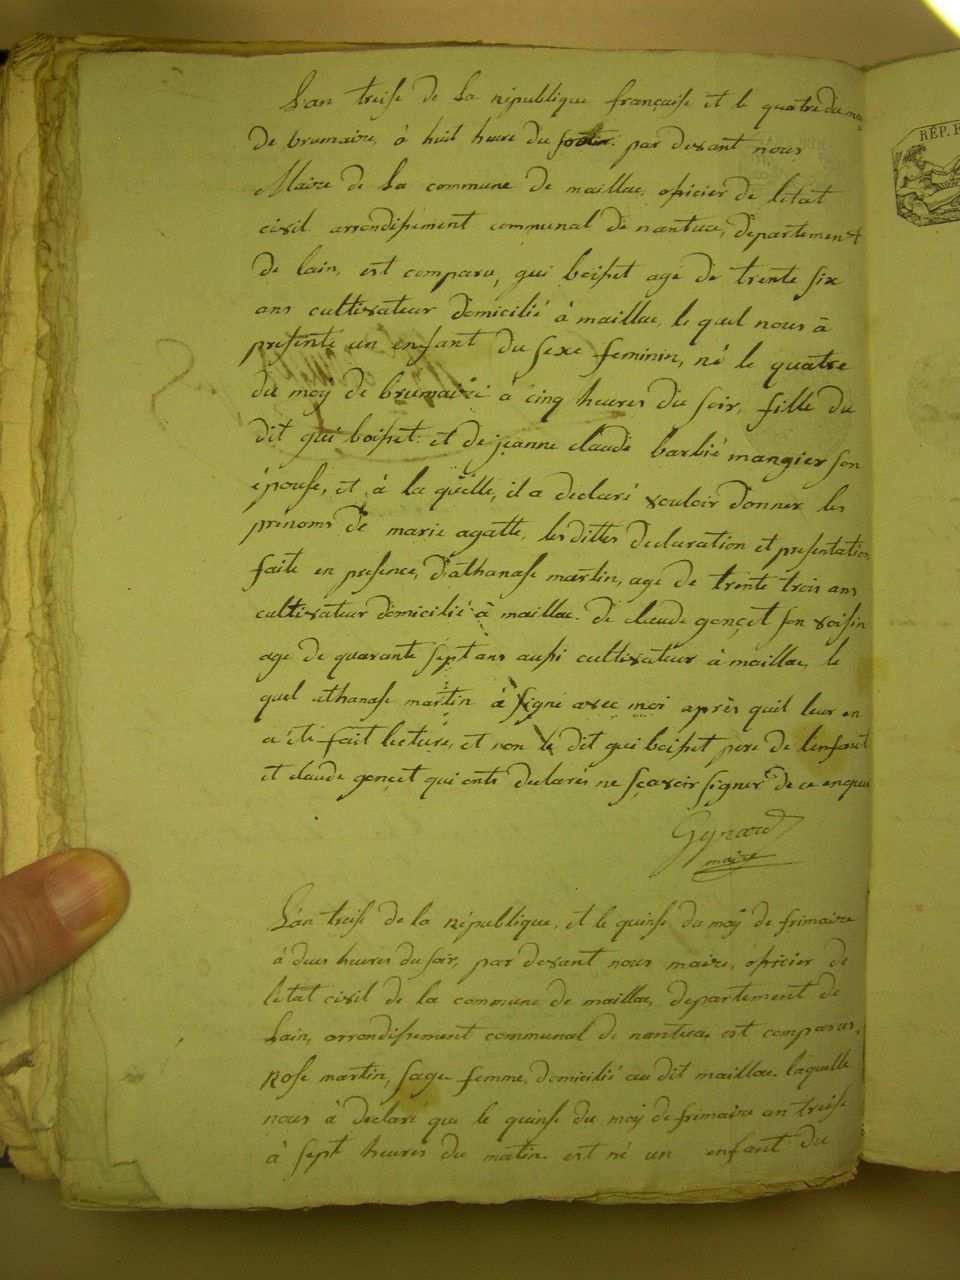 L'an treise de La république française et le quatre du moy
de brumaire, à huit heure du soir par devant nous
Maire de La commune de maillac, oficier de letat
civil arrondissement communal de nantua, departement
de lain, est comparu, gui boisset age de trente six
ans cultivateur domicilié à maillac, le quel nous à
presenté un enfant du sexe feminin, né le quatre
du moÿ de brumaire à cinq heures du soir, fille du
dit gui boisset et de jeanne claude barbié mangier son
épouse, et à la quelle, il a declaré vouloir donner les
prenoms de marie agatte, les dittes declaration et presentation
faite en presence, d'athanase martin, age de trente trois ans
cultivateur domicilié à maillac. de claude gonçet son voisin
age de quarante sept ans aussi cultivateur à maillac, le
quel athanase martin à signé avec moi après quil leur en
a été fait lecture, et non le dit gui boisset, pere de lenfant
et claude gonçet qui onts declarés ne sçavoir signer de ce enquis
Gynard
maire
RÉP. F
L'an treise de la république, et le quinse du moÿ de frimaire
à deus heures du soir, par devant nous maire, oficier de
letat civil de la commune de maillac, departement de
Lain, arrondissement communal de nantua, est comparus,
Rose martin, sage femme, domicilié au dit maillac. laquelle
nous à declaré que le quinse du moÿ de frimaire an treise
à sept heures du matin est né un enfant du